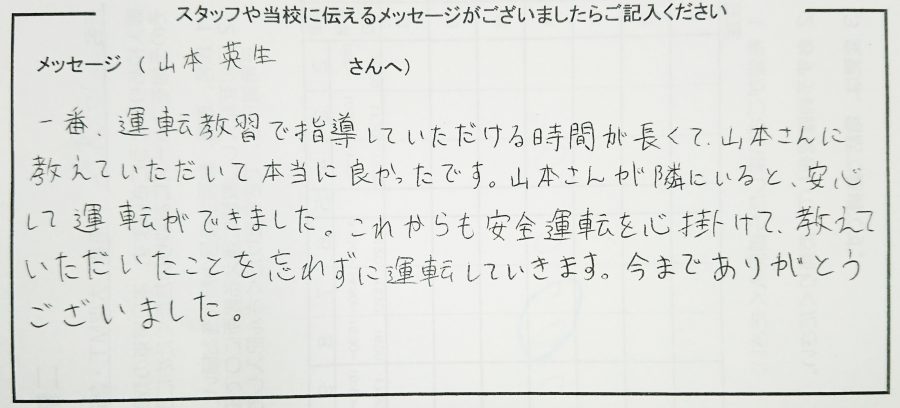 スタッフや当校に伝えるメッセージがございましたらご記入ください
メッセージ（山本 英生 さんへ）
一番、運転教習で指導していただける時間が長くて、山本さんに
教えていただいて本当に良かったです。山本さんが隣にいると、安心
して運転ができました。これからも安全運転を心掛けて、教えて
いただいたことを忘れずに運転していきます。今までありがとう
ございました。